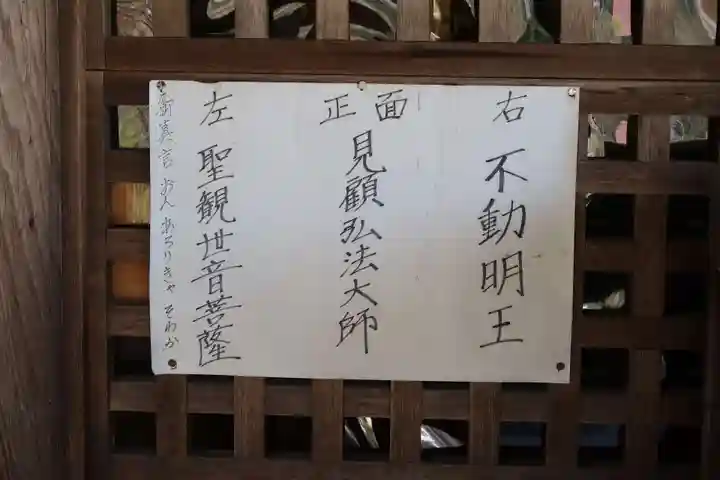 右 不動明王
正面 見顧弘法大師
左 聖観世音菩薩
御真言 おん あろりきゃ そわか